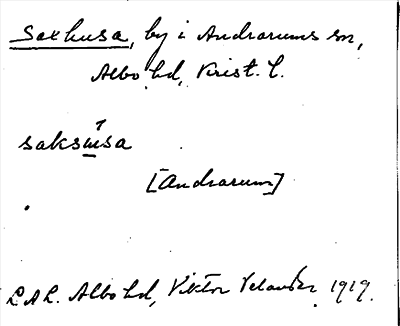 Saxhusa, by i Andrarums sn,
Albo hd, Krist. l.
saksu̲sa
[Andrarum]
L.A.L. Albo hd, Viktor 1919.